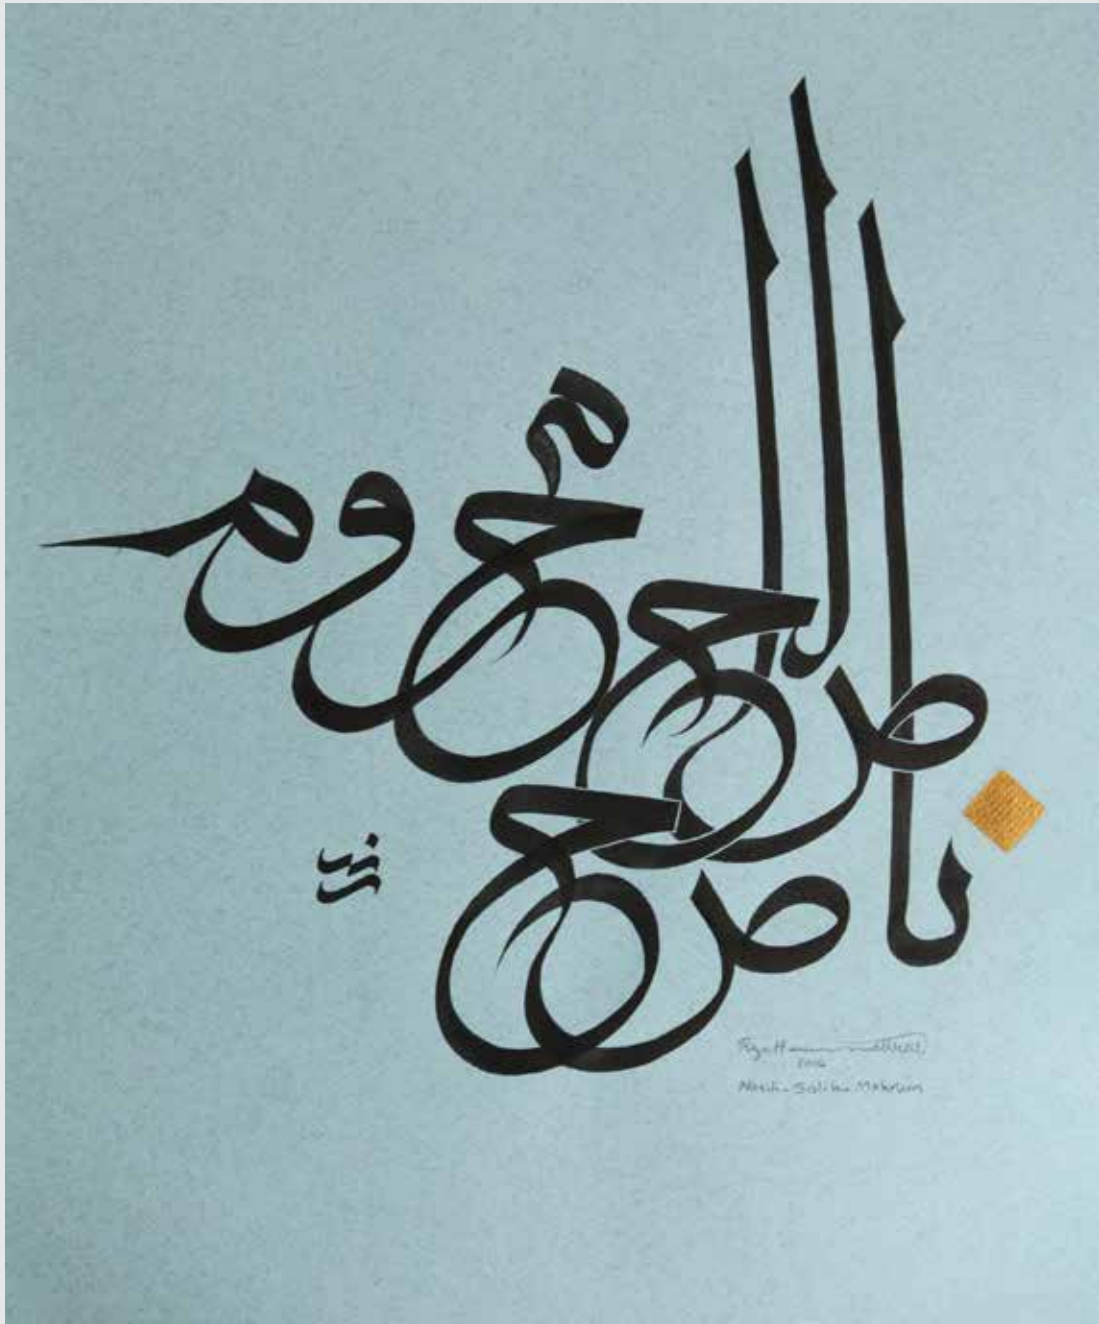 ناصح
صالح
محروم
Nasih - Salih - Mahrum